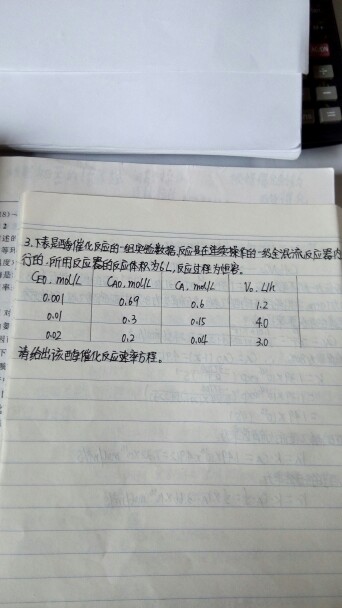 3.下表是酶催化反应的一组实验数据,反应是在连续操作的一级全混流反应器内
行的,所用反应器的反应体积为6L,反应过程为恒容。
CE0, mol/L CA0, mol/L CA, mol/L V0, L/h
0.001 0.69 0.6 1.2
0.01 0.3 0.15 4.0
0.02 0.2 0.04 3.0
请给出该酶催化反应速率方程。